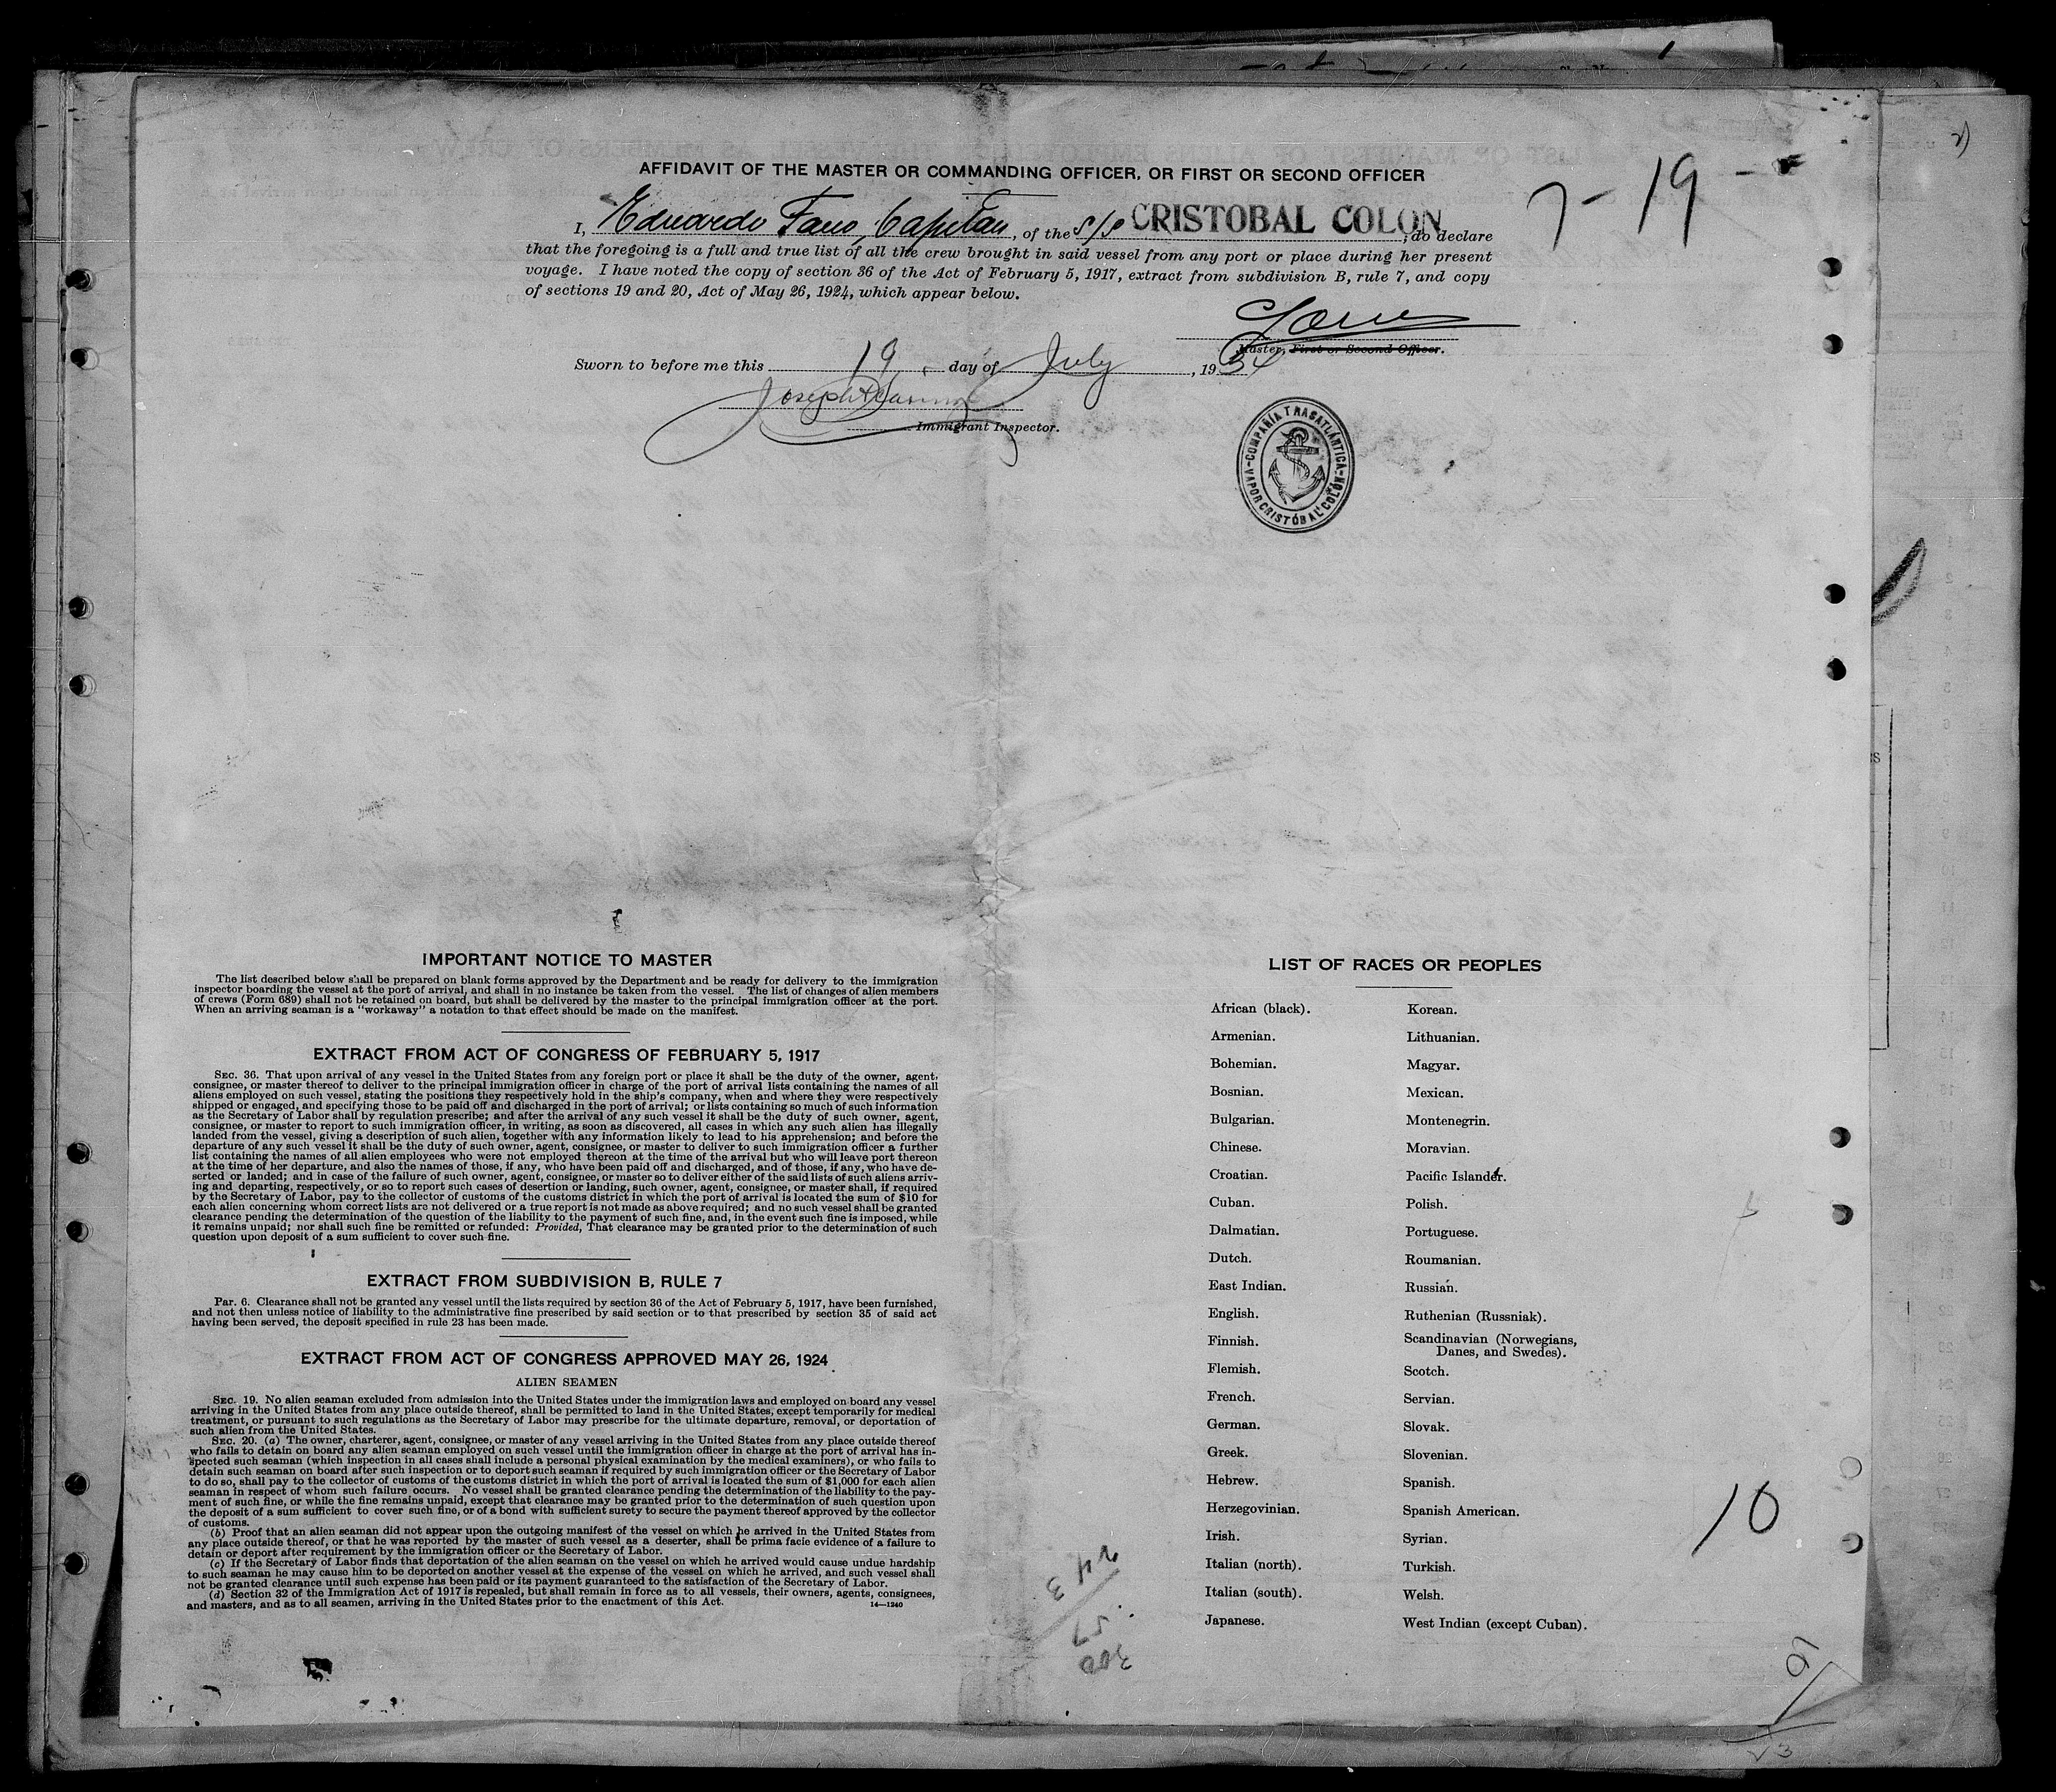 AFFIDAVIT OF THE MASTER OR COMMANDING OFFICER, OR FIRST OR SECOND OFFICER
7-19-
I, Eduardo Fano, Capitan, of the S/S CRISTOBAL COLON, do declare
that the foregoing is a full and true list of all the crew brought in said vessel from any port or place during her present
voyage. I have noted the copy of section 36 of the Act of February 5, 1917, extract from subdivision B, rule 7, and copy
of sections 19 and 20, Act of May 26, 1924, which appear below.
Master, First or Second Officer.
Sworn to before me this 19 day of July, 1934
Joseph
Immigrant Inspector.
COMPAÑÍA TRASATLÁNTICA
VAPOR CRISTÓBAL COLÓN
IMPORTANT NOTICE TO MASTER
The list described below shall be prepared on blank forms approved by the Department and be ready for delivery to the immigration
inspector boarding the vessel at the port of arrival, and shall in no instance be taken from the vessel. The list of changes of alien members
of crews (Form 689) shall not be retained on board, but shall be delivered by the master to the principal immigration officer at the port.
When an arriving seaman is a "workaway" a notation to that effect should be made on the manifest.
EXTRACT FROM ACT OF CONGRESS OF FEBRUARY 5, 1917
SEC. 36. That upon arrival of any vessel in the United States from any foreign port or place it shall be the duty of the owner, agent,
consignee, or master thereof to deliver to the principal immigration officer in charge of the port of arrival lists containing the names of all
aliens employed on such vessel, stating the positions they respectively hold in the ship's company, when and where they were respectively
shipped or engaged, and specifying those to be paid off and discharged in the port of arrival; or lists containing so much of such information
as the Secretary of Labor shall by regulation prescribe; and after the arrival of any such vessel it shall be the duty of such owner, agent,
consignee, or master to report to such immigration officer, in writing, as soon as discovered, all cases in which any such alien has illegally
landed from the vessel, giving a description of such alien, together with any information likely to lead to his apprehension; and before the
departure of any such vessel it shall be the duty of such owner, agent, consignee, or master to deliver to such immigration officer a further
list containing the names of all alien employees who were not employed thereon at the time of the arrival but who will leave port thereon
at the time of her departure, and also the names of those, if any, who have been paid off and discharged, and of those, if any, who have de-
serted or landed; and in case of the failure of such owner, agent, consignee, or master so to deliver either of the said lists of such aliens arriv-
ing and departing, respectively, or so to report such cases of desertion or landing, such owner, agent, consignee, or master shall, if required
by the Secretary of Labor, pay to the collector of customs of the customs district in which the port of arrival is located the sum of $10 for
each alien concerning whom correct lists are not delivered or a true report is not made as above required; and no such vessel shall be granted
clearance pending the determination of the question of the liability to the payment of such fine, and, in the event such fine is imposed, while
it remains unpaid; nor shall such fine be remitted or refunded: Provided, That clearance may be granted prior to the determination of such
question upon deposit of a sum sufficient to cover such fine.
EXTRACT FROM SUBDIVISION B, RULE 7
Par. 6. Clearance shall not be granted any vessel until the lists required by section 36 of the Act of February 5, 1917, have been furnished,
and not then unless notice of liability to the administrative fine prescribed by said section or to that prescribed by section 35 of said act
having been served, the deposit specified in rule 23 has been made.
EXTRACT FROM ACT OF CONGRESS APPROVED MAY 26, 1924
ALIEN SEAMEN
SEC. 19. No alien seaman excluded from admission into the United States under the immigration laws and employed on board any vessel
arriving in the United States from any place outside thereof, shall be permitted to land in the United States, except temporarily for medical
treatment, or pursuant to such regulations as the Secretary of Labor may prescribe for the ultimate departure, removal, or deportation of
such alien from the United States.
SEC. 20. (a) The owner, charterer, agent, consignee, or master of any vessel arriving in the United States from any place outside thereof
who fails to detain on board any alien seaman employed on such vessel until the immigration officer in charge at the port of arrival has in-
spected such seaman (which inspection in all cases shall include a personal physical examination by the medical examiners), or who fails to
detain such seaman on board after such inspection or to deport such seaman if required by such immigration officer or the Secretary of Labor
to do so, shall pay to the collector of customs of the customs district in which the port of arrival is located the sum of $1,000 for each alien
seaman in respect of whom such failure occurs. No vessel shall be granted clearance pending the determination of the liability to the pay-
ment of such fine, or while the fine remains unpaid, except that clearance may be granted prior to the determination of such question upon
the deposit of a sum sufficient to cover such fine, or of a bond with sufficient surety to secure the payment thereof approved by the collector
of customs.
(b) Proof that an alien seaman did not appear upon the outgoing manifest of the vessel on which he arrived in the United States from
any place outside thereof, or that he was reported by the master of such vessel as a deserter, shall be prima facie evidence of a failure to
detain or deport after requirement by the immigration officer or the Secretary of Labor.
(c) If the Secretary of Labor finds that deportation of the alien seaman on the vessel on which he arrived would cause undue hardship
to such seaman he may cause him to be deported on another vessel at the expense of the vessel on which he arrived, and such vessel shall
not be granted clearance until such expense has been paid or its payment guaranteed to the satisfaction of the Secretary of Labor.
(d) Section 32 of the Immigration Act of 1917 is repealed, but shall remain in force as to all vessels, their owners, agents, consignees,
and masters, and as to all seamen, arriving in the United States prior to the enactment of this Act.
14—1240
LIST OF RACES OR PEOPLES
African (black). Korean.
Armenian. Lithuanian.
Bohemian. Magyar.
Bosnian. Mexican.
Bulgarian. Montenegrin.
Chinese. Moravian.
Croatian. Pacific Islander.
Cuban. Polish.
Dalmatian. Portuguese.
Dutch. Roumanian.
East Indian. Russian.
English. Ruthenian (Russniak).
Finnish. Scandinavian (Norwegians,
Danes, and Swedes).
Flemish. Scotch.
French. Servian.
German. Slovak.
Greek. Slovenian.
Hebrew. Spanish.
Herzegovinian. Spanish American.
Irish. Syrian.
Italian (north). Turkish.
Italian (south). Welsh.
Japanese. West Indian (except Cuban).
10
243
57
300